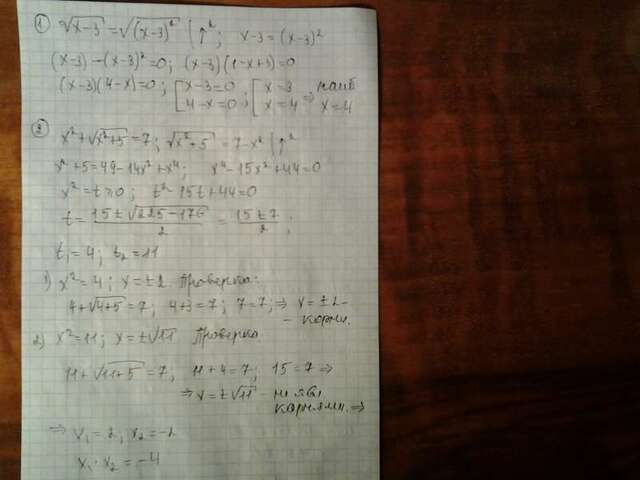 ① √x-3 = √(x-3)² | ↑²; x-3=(x-3)²
(x-3)-(x-3)²=0; (x-3)(1-x+3)=0
(x-3)(4-x)=0; [x-3=0 [x=3 наиб
4-x=0; x=4 ⇒ x=4
② x²+√x²+5=7; √x²+5=7-x² | ↑²
x²+5=49-14x²+x⁴; x⁴-15x²+44=0
x²=t≥0; t²-15t+44=0
t=(15±√225-176)/2=(15±7)/2;
t₁=4; t₂=11
1) x²=4; x=±2. Проверка:
4+√4+5=7; 4+3=7; 7=7; ⇒ x=±2-
- корни.
2) x²=11; x=±√11 Проверка.
11+√11+5=7; 11+4=7; 15=7 ⇒
⇒ x=±√11 - не явл
корнями. ⇒
⇒ x₁=2; x₂=-2
x₁·x₂=-4